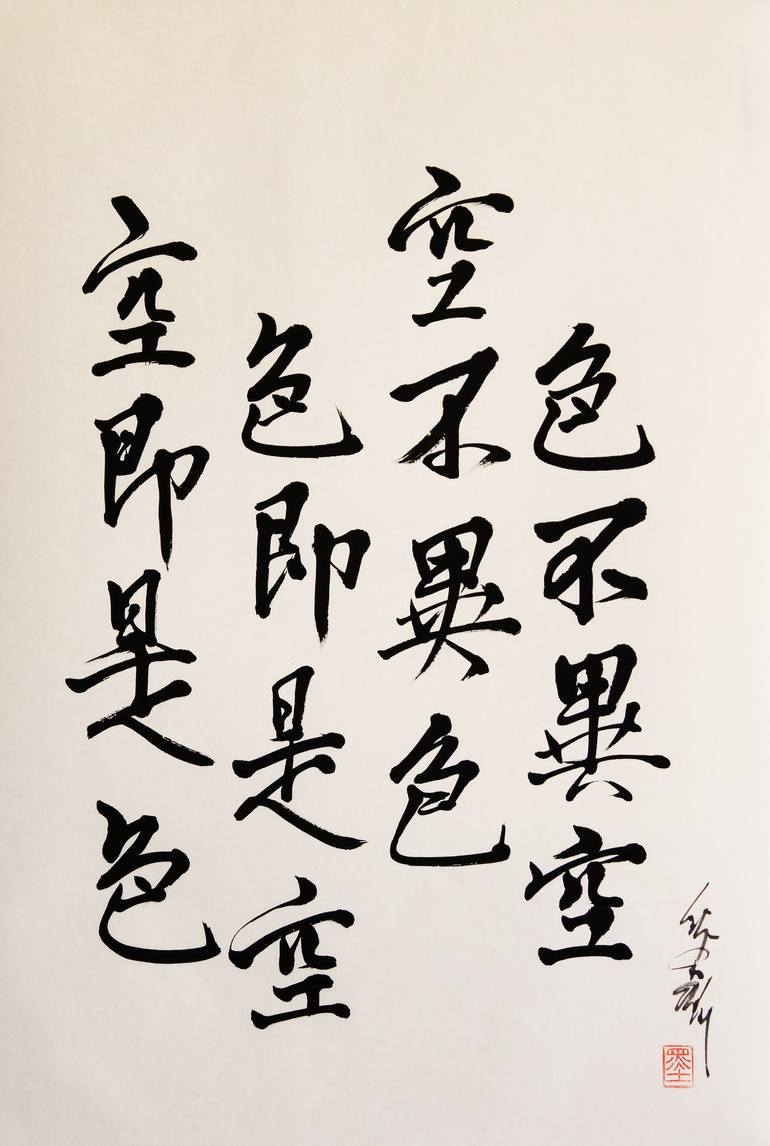 色不異空
空不異色
色即是空
空即是色
墨